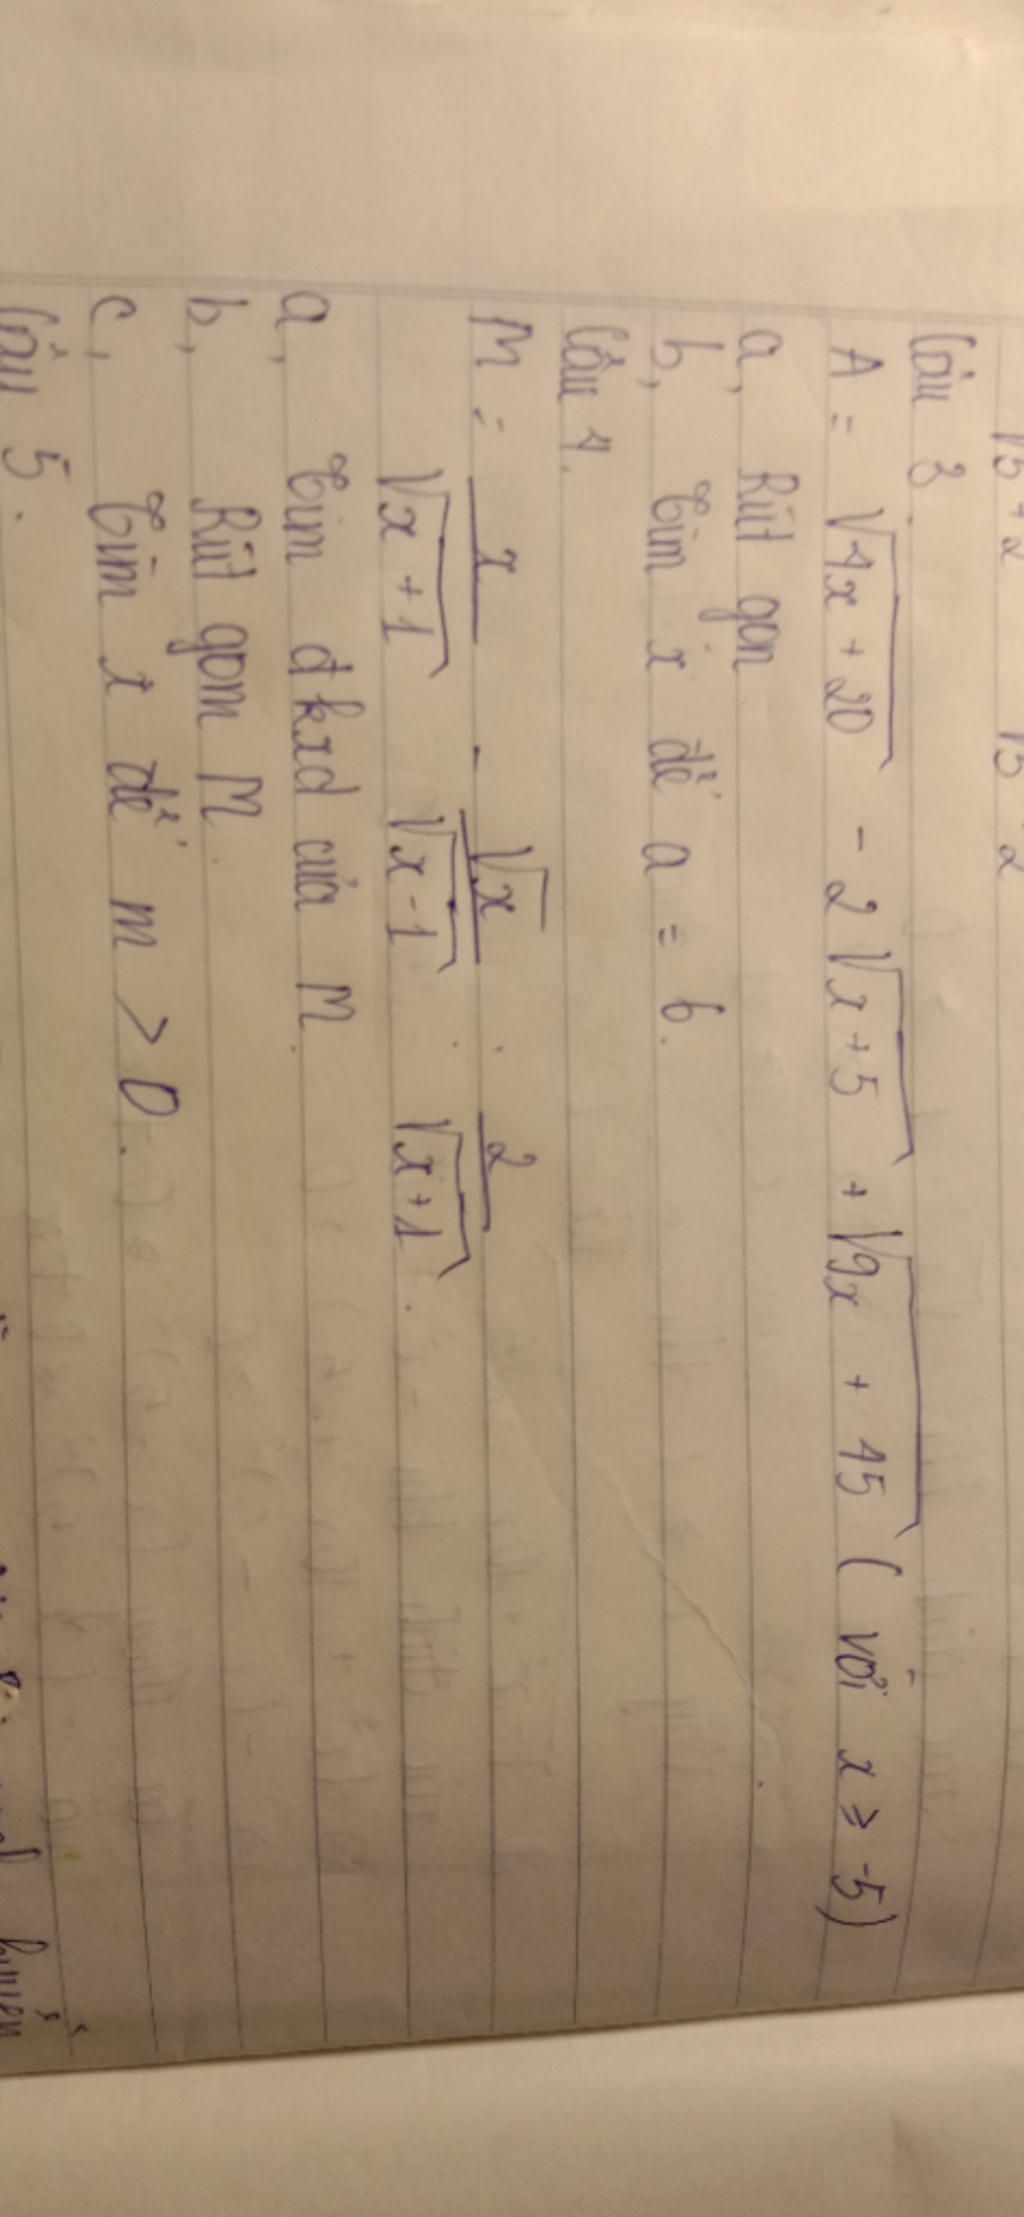 √5+2 √5-2
Câu 3
A = √4x + 20 - 2√x+5 + √9x + 45 ( với x ≥ -5)
a, Rút gọn
b, Tìm x để a = 6.
Câu 4.
M = x/√x+1 - √x/√x-1 : 2/√x+1.
a, Tìm đkxđ của M.
b, Rút gọn M.
c, Tìm x để m > 0.
Câu 5.